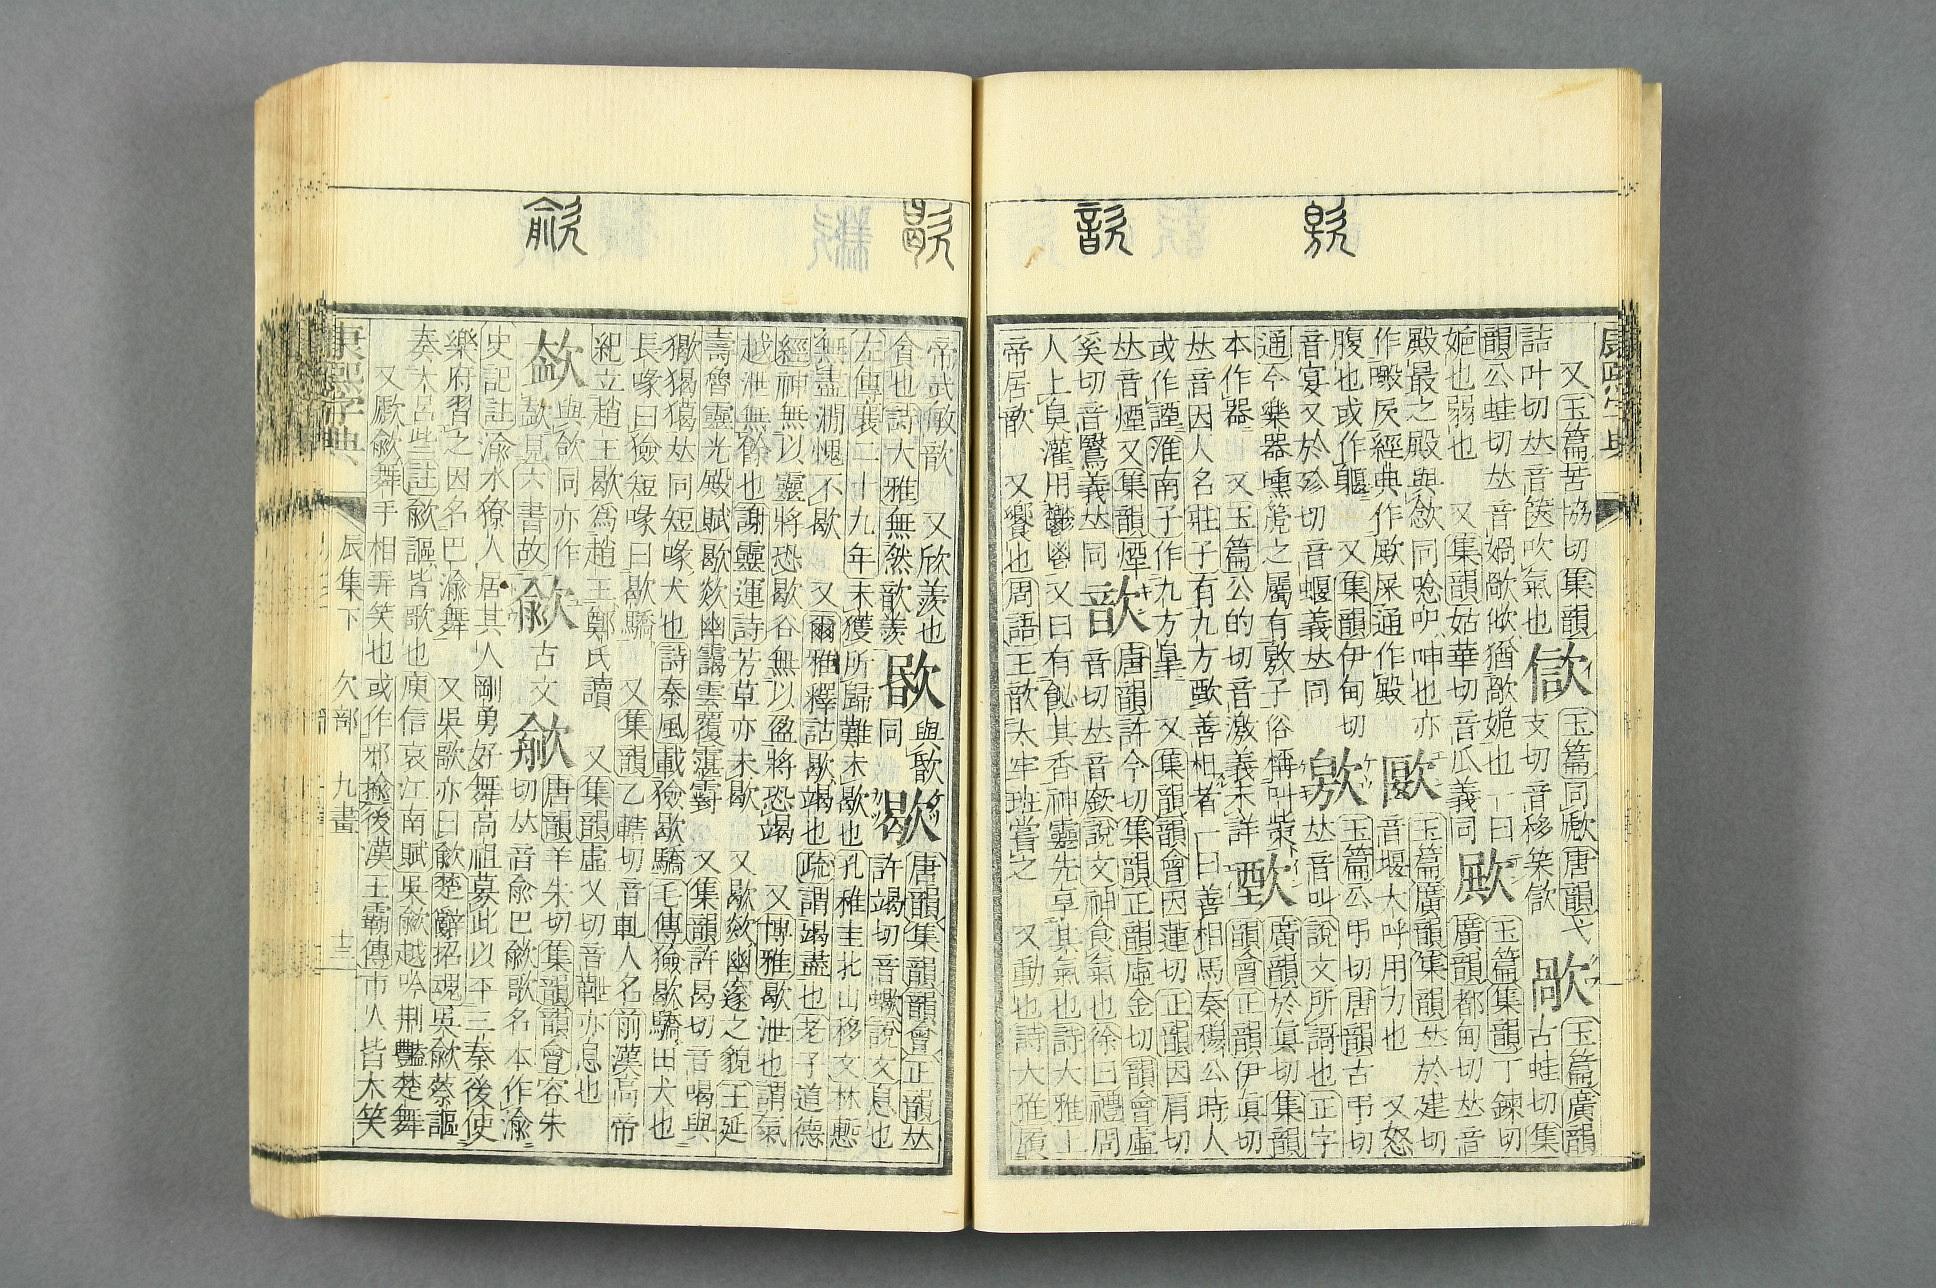 康熙字典
又玉篇苦協切集韻
詰叶切𠀤音篋吹氣也
玉篇同
唐韻弋
支切音移
歄
玉篇廣韻
古蛙切集
韻公蛙切𠀤音媧
也一曰
也弱也 又集韻姑華切音瓜義同
玉篇集韻丁鍊切
廣韻都甸切𠀤音
殿最之殿與㰸同唸㕧呻也亦
作 㞙經典作 屎通作殿
玉篇廣韻集韻𠀤於建切
音堰大呼用力也 又怒
腹也或作躽 又集韻伊甸切
音宴又於殄切音蝘義𠀤同
玉篇公弔切唐韻古弔切
𠀤音叫說文所謌也正字
通今樂器壎篪之屬有敫子俗稱叫
本作器 又玉篇公的切音激義未詳
歅
廣韻於眞切集韻
韻會正韻伊眞切
𠀤音因人名莊子有九方歅善相者一曰善相馬秦穆公時人
或作諲淮南子作九方臯 又集韻韻會因蓮切正韻因肩切
𠀤音煙又集韻煙
奚切音鷖義𠀤同
歆
唐韻許今切集韻正韻虛金切韻會虛
音切𠀤音㱃說文神食氣也徐曰禮周
人上臭灌用鬱鬯 又曰有飶其香神靈先享其氣也詩大雅上
帝居歆 又饗也周語王歆太牢班嘗之 又動也詩大雅履
帝武敏歆 又欣羨也
貪也詩大雅無然歆羨
與歇
同
歇
唐韻集韻韻會正韻𠀤
許竭切音蠍說文息也
左傳襄二十九年未獲所歸難未歇也孔稚圭北山移文林慙
無盡澗愧不歇 又爾雅釋詁歇竭也疏謂竭盡也老子道德
經神無以靈將恐歇谷無以盈將恐竭 又博雅歇泄也謂氣
越泄無餘也謝靈運詩芳草亦未歇 又歇欻幽邃之貌王延
壽魯靈光殿賦歇欻幽靄雲覆霮䨴 又集韻許曷切音喝與
獦猲𠀤同短喙犬也詩秦風載獫歇驕毛傳獫歇驕田犬也
長喙曰獫短喙曰歇驕 又集韻乙轄切音軋人名前漢高帝
紀立趙王歇爲趙王鄭氏讀 又集韻虛乂切音 亦息也
見六書故
與欱同亦作
歈
古文
唐韻羊朱切集韻韻會容朱
切𠀤音兪巴歈歌名本作渝
史記註渝水獠人居其人剛勇好舞高祖募此以平三秦後使
樂府習之因名巴渝舞 又吳歌亦曰歈楚辭招魂吳歈蔡謳
奏大呂些註歈謳皆歌也庾信哀江南賦吳歈越吟荆豔楚舞
又歋歈舞手相弄笑也或作邪揄後漢王霸傳市人皆大笑
康熙字典 辰集下 欠部 九畫 十三